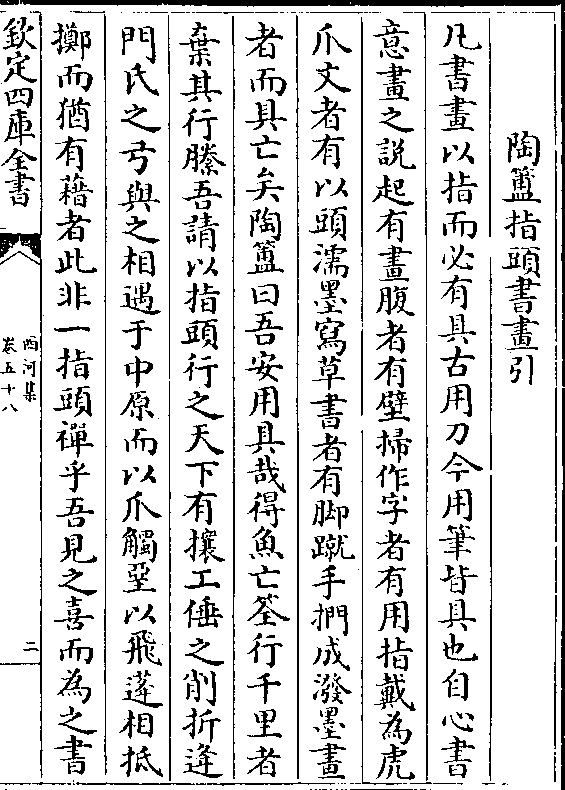 陶簠指頭書畫引
凡書畫以指而必有具古用刀今用筆皆具也自心書
意畫之說起有畫腹者有壁掃作字者有用指戴為虎
爪文者有以頭濡墨寫草書者有脚蹴手捫成潑墨畫
者而具亡矣陶簠曰吾安用具哉得魚亡筌行千里者
棄其行縢吾請以指頭行之天下有攘工倕之削折逄
門氏之弓與之相遇于中原而以爪觸堊以飛蓬相抵
擲而猶有藉者此非一指頭禪乎吾見之喜而為之書
欽定四庫全書
西河集
卷五十八
二